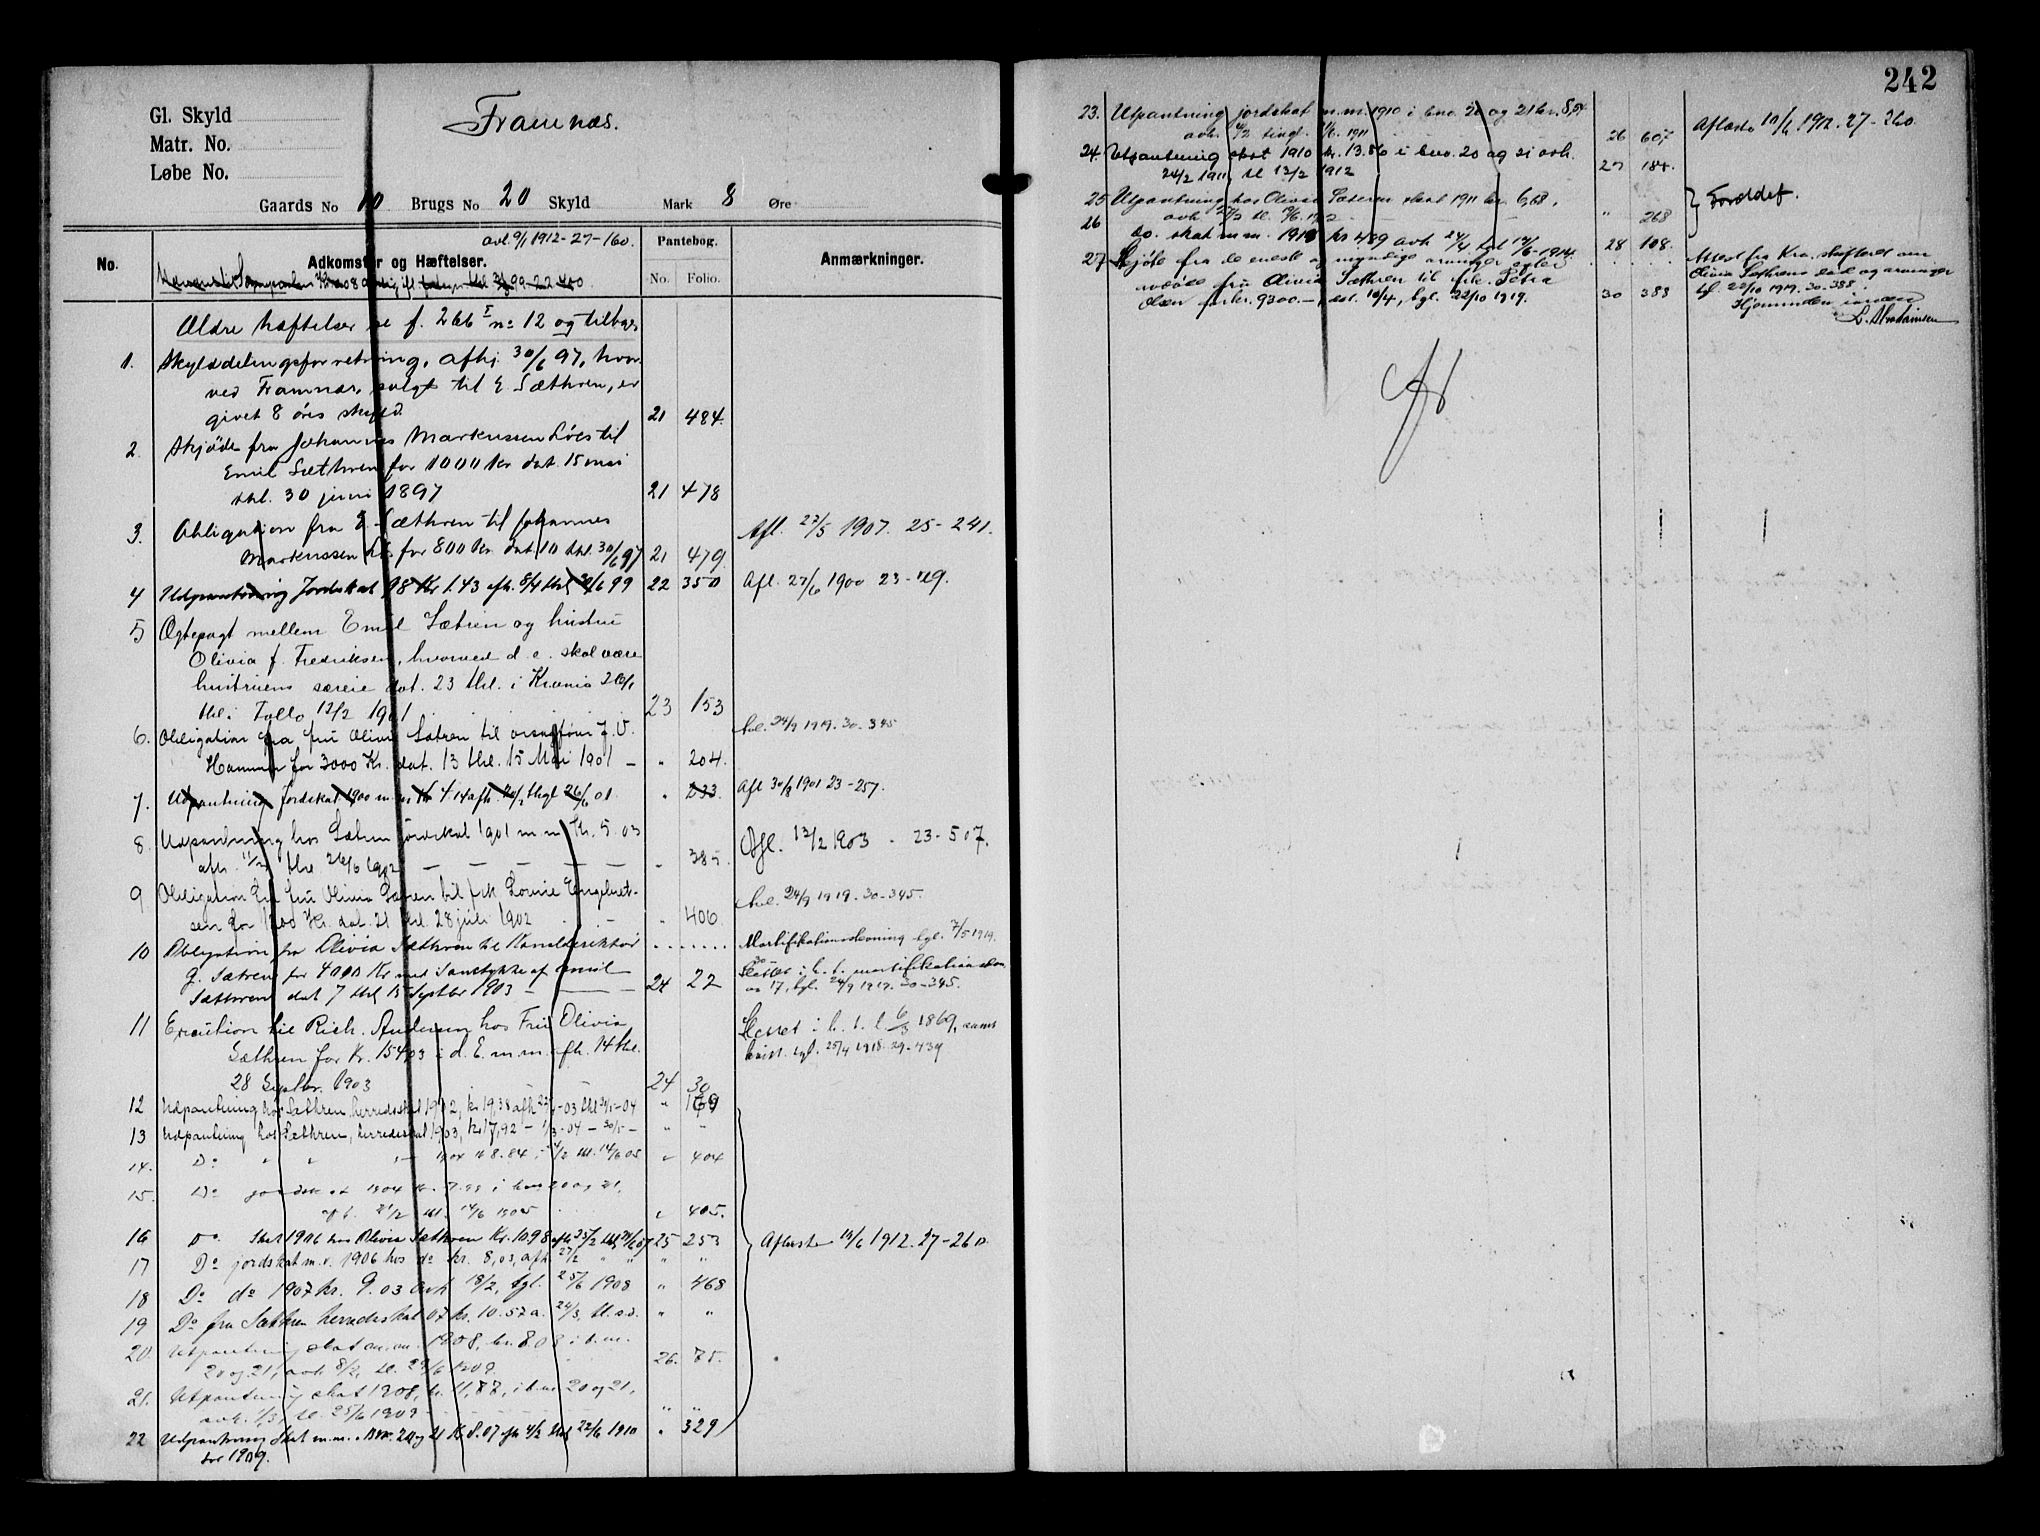 Gl. Skyld
Matr. No.
Løbe No.
Framnæs.
Gaards No 10 Brugs No 20 Skyld Mark 8 Øre
No.
avl. 9/1 1912-27-160.
Adkomster og Hæftelser.
99-22-400
Pantebog.
No. Folio.
Anmærkninger.
Ældre hæftelser se f. 266 I no 12 og tilbage
1. Skylddelingsforretning, afhj. 30/6 97, hvor-
ved Framnæs, solgt til E Sæthren, er
givet 8 øres skyld 21 484.
2. Skjøde fra Johannes Markussen Löes til
Emil Sæthren for 1000 kr dat. 15 mai
thl. 30 juni 1897 21 478
3. Obligation fra E. Sæthren til Johannes Afl. 27/5 1907. 25-241.
Markussen for 800 kr. dat 10 thl. 30/6 97 21 479
4 Udpantning Jordskat 98 Kr 1.43 afh. 8/4 thl. 99 22 350 Afl. 27/6 1900 23-
5 Ægtepagt mellem Emil Sætren og hustru
Olivia f. Fredriksen, hvorved d. e. skal være
hustruens særeie dat. 23 thl. i Krania
thl. i Follo 12/2 1901 23 153
6. Obligation fra fru Olivia Sætren til J. V. 24/9 1919. 30-345
Hammer for 3000 Kr. dat. 13 thl. 15 Mai 1901 - " 204.
7. Udpantning Jordskat 1900 m. m Kr 4.14 afh. thgl 26/6 01. " 233. Afl 30/8 1901 23-257.
8. Udpantning hos Sæthren Jordskat 1901 m m Kr. 5.03 Afl. 12/2 1903 - 23-507.
afh. 11/2 thl 26/6 1902 - - - - - " 385.
9 Obligation fra fru Olivia Sætren til frk Lovise Engebret- 24/9 1919. 30-345.
sen for 1200 Kr. dat. 21 thl 28 juli 1902 " 406.
10 Obligation fra Olivia Sæthren til Mortifikationsdom tgl. 7/5 1919.
G. Sætren for 4000 Kr med Samtykke af Emil 24 22 Slettet i h. t. mortifikation
Sæthren dat 7 thl 15 Septbr 1903 - tgl. 24/9 1919. 30-345.
11 Execution til Rich. Andersen hos Fru Olivia Slettet i h. t. l. 6/3 1869, samt
Sæthren for Kr. 154,03 i d. E. m. m. afh. 14 thl. tgl. 25/4 1918. 29-439
28 Septbr. 1903 24 30
12 Udpantning hos Sæthren, herredsskat 1902, kr 19,38 afh -03 thl -04 " 169
13 Udpantning hos Sæthren, herredskat 1903, kr 17,92 - 1/3-04 - 30/5 - " "
14. Do " " 1904 kr 8.84, 24/2 thl. 14/6 05 " 404
15. Do jordskat 1904 kr. 7.99 i bno 20 og 21,
afh. 24/2 thl. 14/6 1905 " 405.
16 Do. Skat 1906 hos Olivia Sæthren Kr. 10.98 afh 25/2 25 253 Aflæste 10/6 1912. 27-260
17 Do jordskat m. v. 1906 hos do kr. 8,03, afh. 27/2 " " " "
18 Do do 1907 kr. 9.03 avh 18/2, tgl. 25/6 1908 " 468
19 Do fru Sæthren herredsskat 07 kr. 10.57 a. 24/3, tl. s.d. " "
20. Utpantning skat m.m. 1908, kr. 8.03 i b.no.
20 og 21, avh 8/2, tl. 25/6 1909 26. 75.
21. Utpantning skat 1908, kr. 11,88, i b.no 20 og 21,
avh. 1/3, tl. 25/6 1909 " "
22 Udpantning Skat m.m. i Bno. 20 og 21 Kr 8.07 afh 4/2 thl 22/6 1910 " 329
for 1909.
242
23. Utpantning jordskat m.m. 1910 i bno. 20 og 21 kr. 8,54 Aflæste 10/6 1912. 27-260.
avh. tingl. 1911 26 607
24. Utpantning skat 1910 kr. 13.86 i bno. 20 og 21 avh.
24/2 1911, tl 12/2 1912 27 184.
25 Utpantning hos Olivia Sæteren skat 1911 kr. 6,68, } Forældet.
avh. 27/2 tl. 1912 " 268
26 do. skat m.m. 1913 kr 4,89 avh 24/4 tgl 12/6-1914. 28 108.
27 Skjøte fra de eneste og myndige arvinger efter Attest fra Kra. skifteret om
avdøde fru Olivia Sæthren til frk. Petra Olivia Sæthrens død og arvinger
Olsen for kr. 9300.-, dat. 10/4, tgl. 22/10 1919. 30 383 tgl. 22/10 1919. 30-388.
L. Abrahamsen